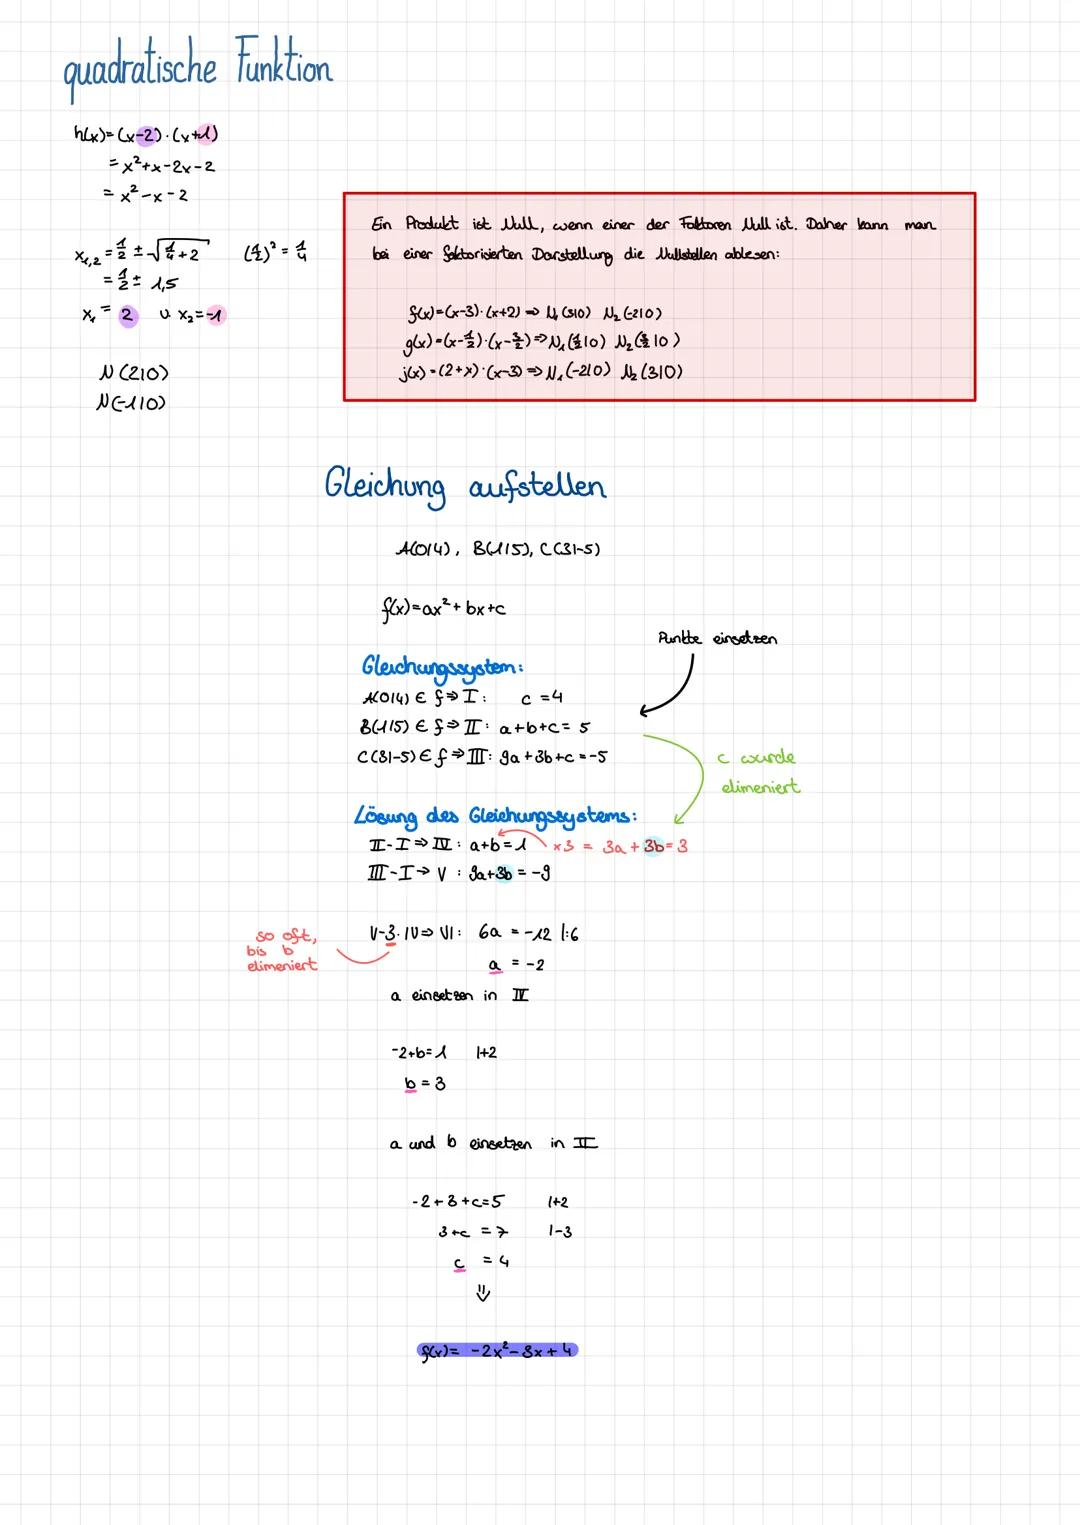 quadratische Funktion
h(x)=(x-2)·(x+1)
=x²+x-2x-2
= x²-x-2
x₁,₂ = 1/2 ± √(1/4+2) (1/2)² = 1/4
= 1/2 ± 1,5
x₁ = 2 u x₂=-1
N(2|0)
N(-1|0)
Ein Produkt ist Null, wenn einer der Faktoren Null ist. Daher kann man
bei einer faktorisierten Darstellung die Nullstellen ablesen:
f(x)=(x-3)·(x+2) ⇒ N₁(3|0) N₂(-2|0)
g(x)=(x-1/2)·(x-3/2) ⇒ N₁(1/2|0) N₂(3/2|0)
j(x)=(2+x)·(x-3) ⇒ N₁(-2|0) N₂(3|0)
Gleichung aufstellen
A(0|4), B(1|5), C(3|-5)
f(x)=ax²+bx+c
Punkte einsetzen
Gleichungssystem:
A(0|4) ∈ f ⇒ I: c =4
B(1|5) ∈ f ⇒ II: a+b+c= 5
C(3|-5) ∈ f ⇒ III: 9a+3b+c =-5
c wurde
elimeniert
Lösung des Gleichungssystems:
II-I ⇒ IV: a+b=1 x3 = 3a + 3b=3
III-I ⇒ V : 9a+3b = -9
so oft,
bis b
elimeniert
V-3·IV ⇒ VI: 6a = -12 |:6
a = -2
a einsetzen in IV
-2+b=1 |+2
b = 3
a und b einsetzen in II
-2+3+c=5 |+2
3+c = 7 |-3
c = 4
⇓
f(x)= -2x²-3x+4